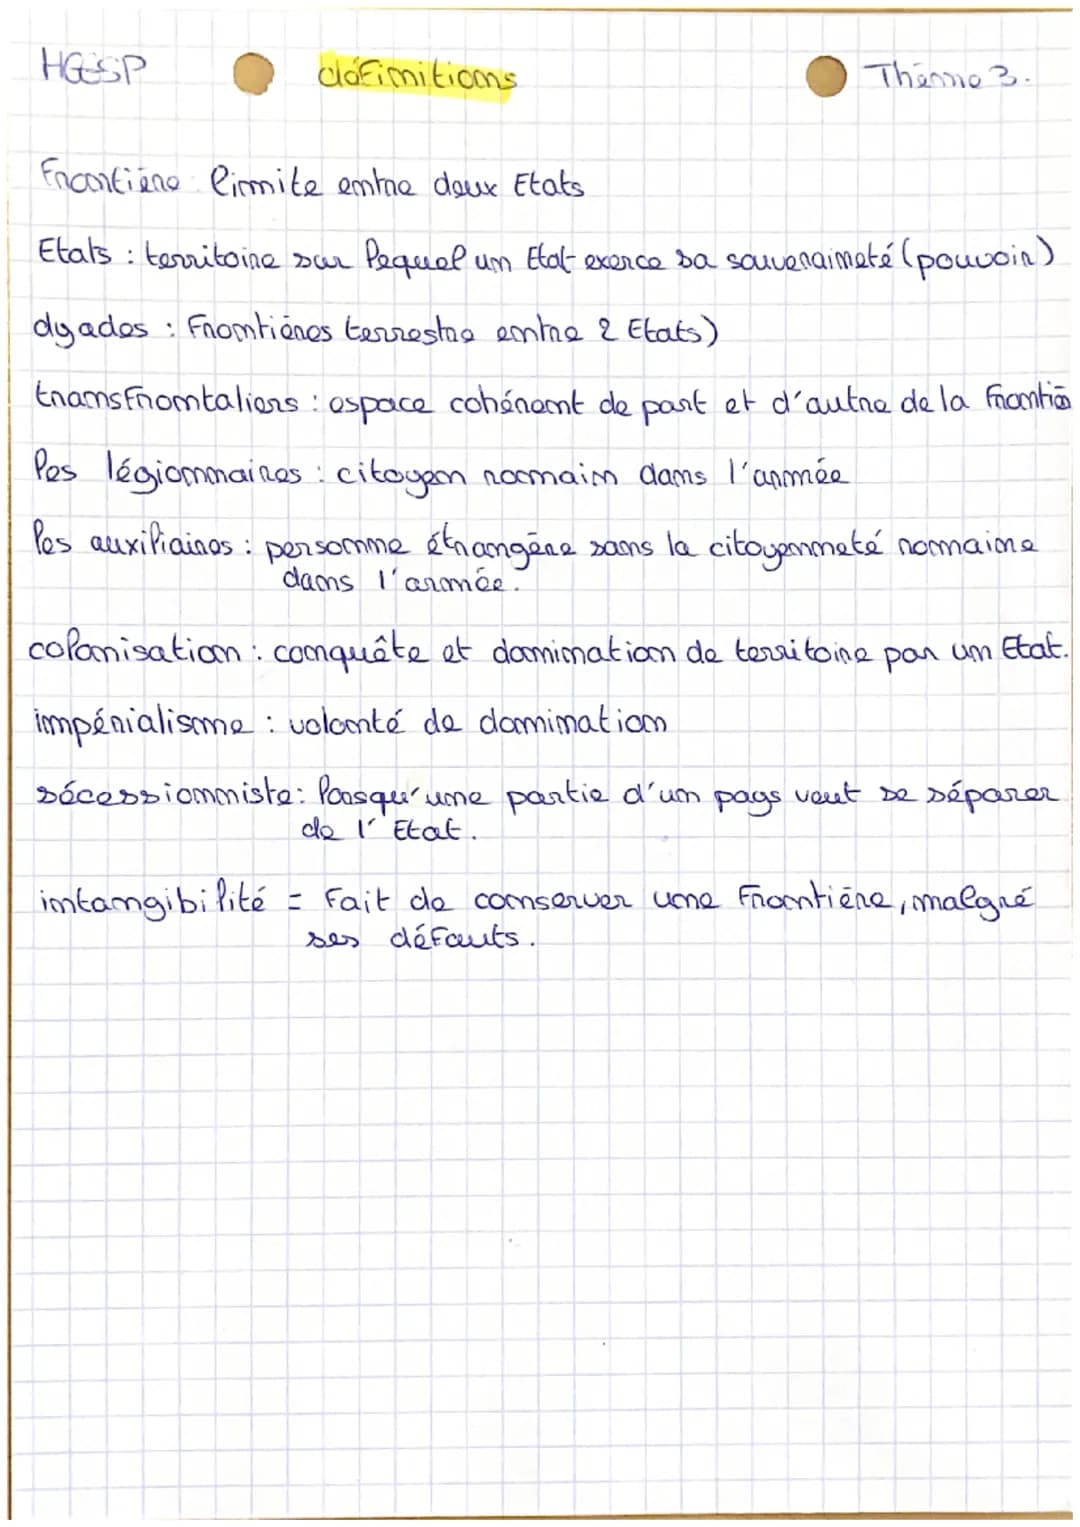 HGGSP définitions Thème 3.
Frontière : limite entre deux Etats
Etats : territoire sur lequel un Etat exerce sa souveraineté (pouvoir)
dyades : Frontières terrestre entre 2 Etats)
transfrontaliers : espace cohérent de part et d'autre de la frontiè
les légionnaires : citoyen romain dans l'armée
les auxiliaires : personne étrangère sans la citoyenneté romaine
dans l'armée.
colonisation : conquête et domination de territoire par un Etat.
impérialisme : volonté de domination
sécessionniste : lorsqu'une partie d'un pays veut se séparer
de l'Etat.
intangibilité = Fait de conserver une Frontière, malgré
ses défauts.